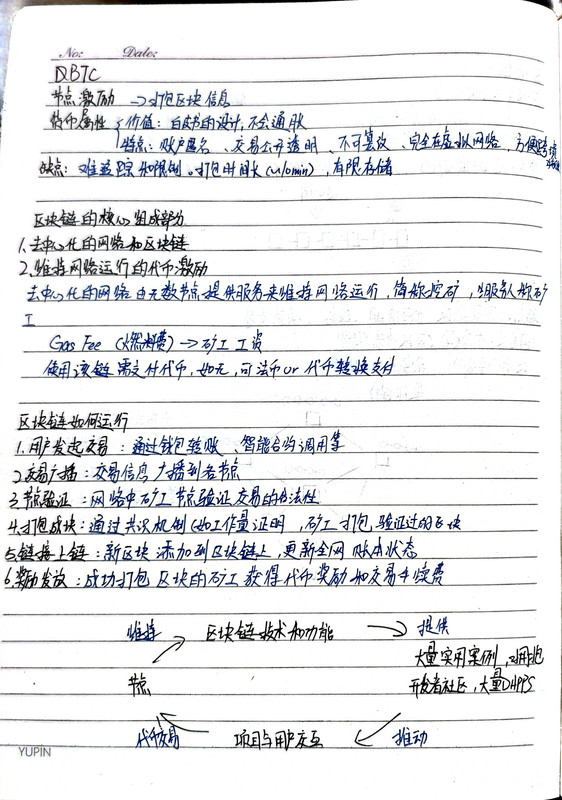 No: Date:
BTC
节点激励 → 打包区块信息
货币属性 { 价值: 白皮书的设计, 不会通胀
特点: 账户匿名、交易公开透明、不可篡改、完全在虚拟网络, 方便跨境
缺点: 难追踪和限制。打包时间长(≈10min), 有限存储
区块链的核心组成部分
1. 去中心化的网络和区块链
2. 维持网络运行的代币激励
去中心化的网络由无数节点提供服务来维持网络运行, 俗称挖矿, 服务人称矿
工
Gas Fee (燃料费) → 矿工工资
使用该链需支付代币, 如无, 可法币 or 代币转换支付
区块链如何运行
1. 用户发起交易: 通过钱包转账、智能合约调用等
2. 交易广播: 交易信息广播到各节点
3. 节点验证: 网络中矿工节点验证交易的合法性
4. 打包成块: 通过共识机制(如工作量证明, 矿工打包, 验证过的区块
5. 链接上链: 新区块添加到区块链上, 更新全网账本状态
6. 奖励发放: 成功打包区块的矿工获得代币奖励和交易手续费
维持 区块链技术和功能 → 提供
大量实用案例,
节点 开发者社区, 大量DAPPS
代币交易 项目与用户交互 推动
YUPIN